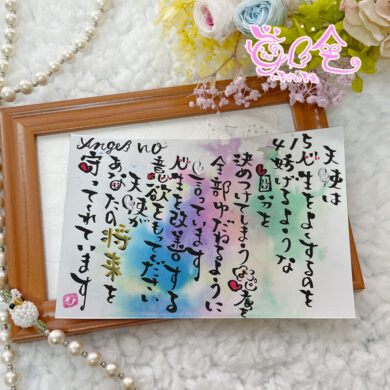 天使は
人生をよくするのを
妨げるような
自分を
決めつけてしまう
全部ゆだねるように
言っています
人生を改善する
意欲をもってください
天使が
あなたの将来を
守ってくれています
Angel no
154